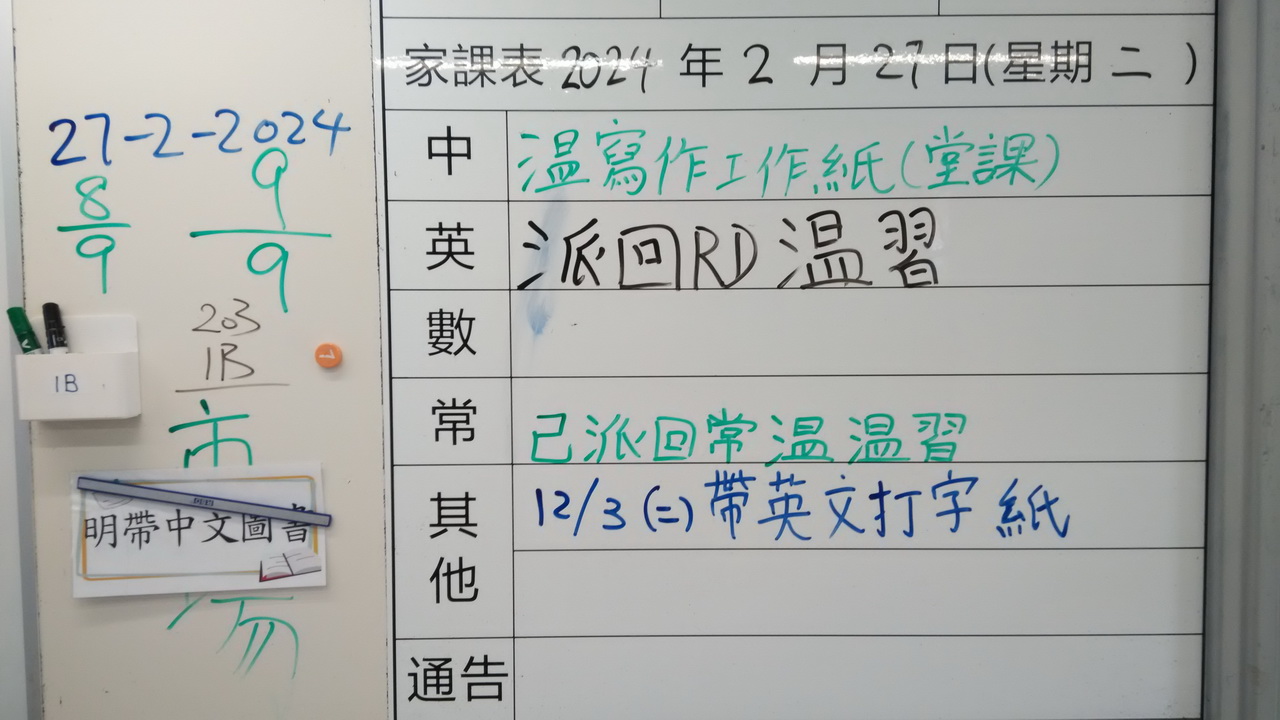 家課表 2024 年 2 月 27 日(星期 二 )
中 溫寫作工作紙(堂課)
英 派回RD 温習
數
常 已派回常温 温習
其他 12/3 (二) 帶英文打字紙
通告
27-2-2024
8/9 9/9
203
1B
市
明帶中文圖書
1B